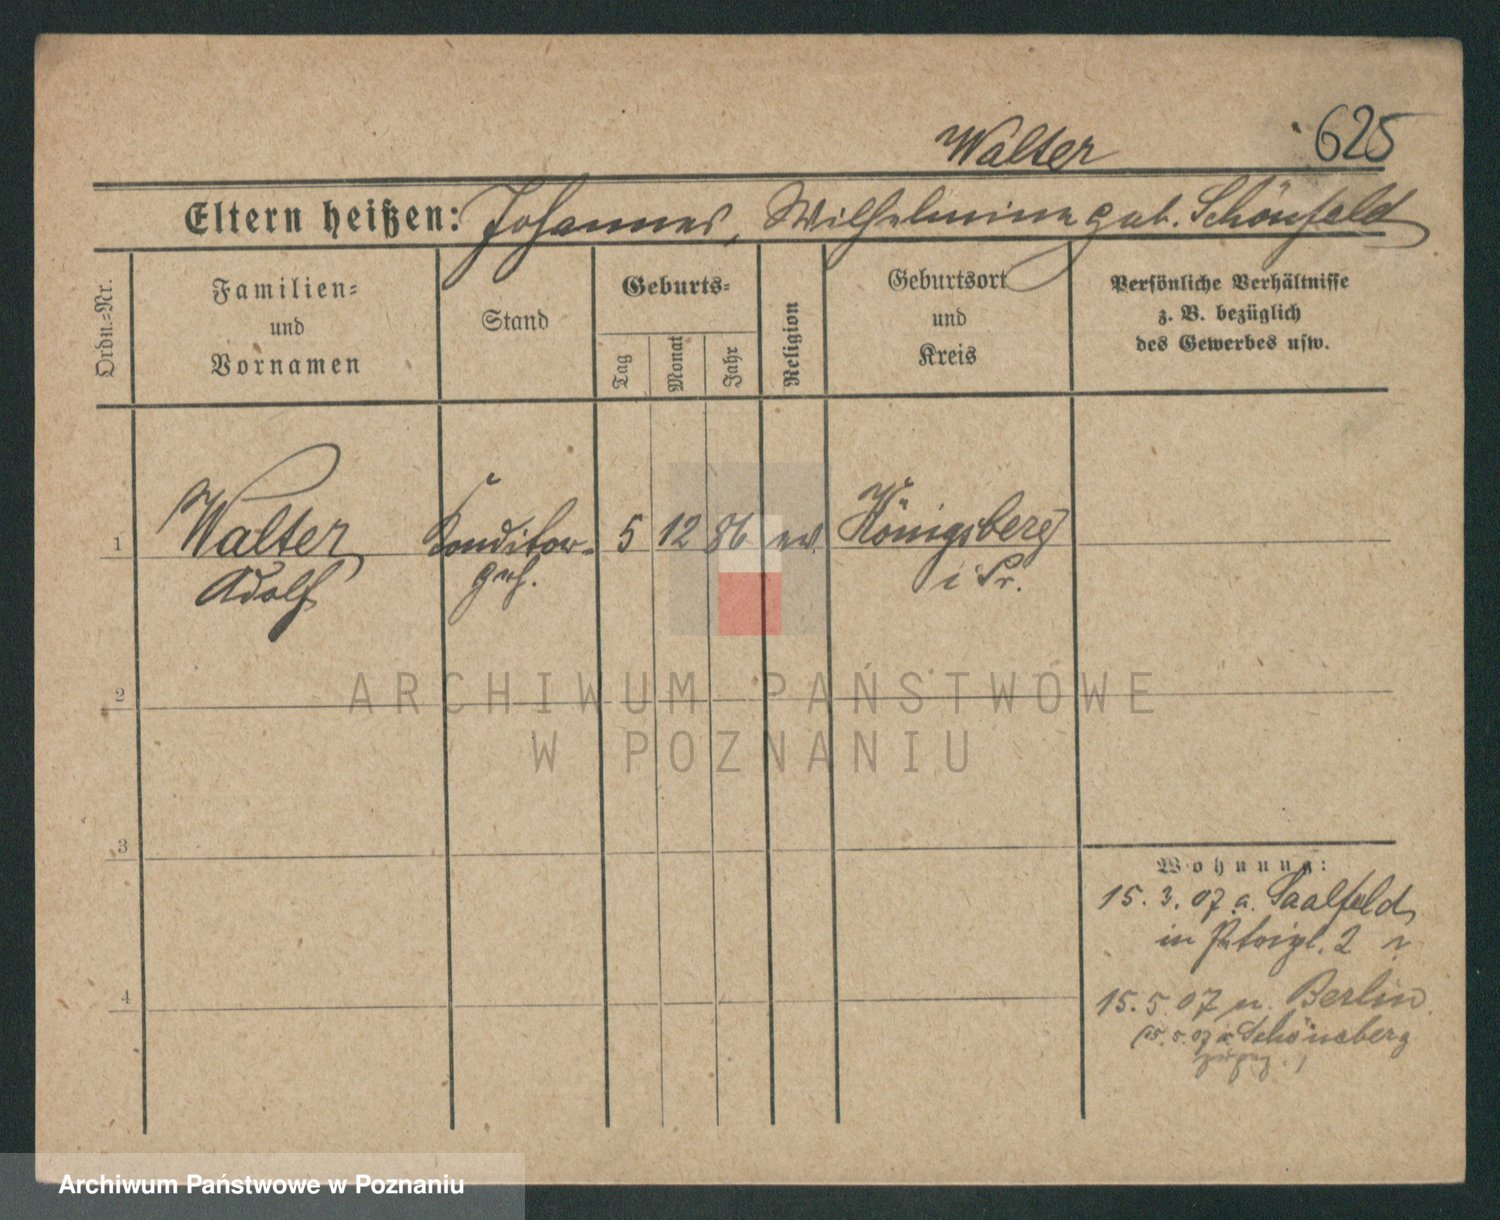 Walter 625
Eltern heißen: Johannes, Wilhelmine geb. Schönfeld
Ordn.=Nr.
Familien=
und
Vornamen
Stand
Geburts=
Tag
Monat
Jahr
Religion
Geburtsort
und
Kreis
Persönliche Verhältnisse
z. B. bezüglich
des Gewerbes usw.
1 Walter Konditor- 5 12 86 ev. Königsberg
Adolf geh. i Pr.
2
ARCHIWUM PAŃSTWOWE
W POZNANIU
3
Wohnung:
15. 3. 07 a. Saalfeld
in 2
4
15. 5. 07 n. Berlin
(15. 5. 07 a. Schöneberg
Archiwum Państwowe w Poznaniu